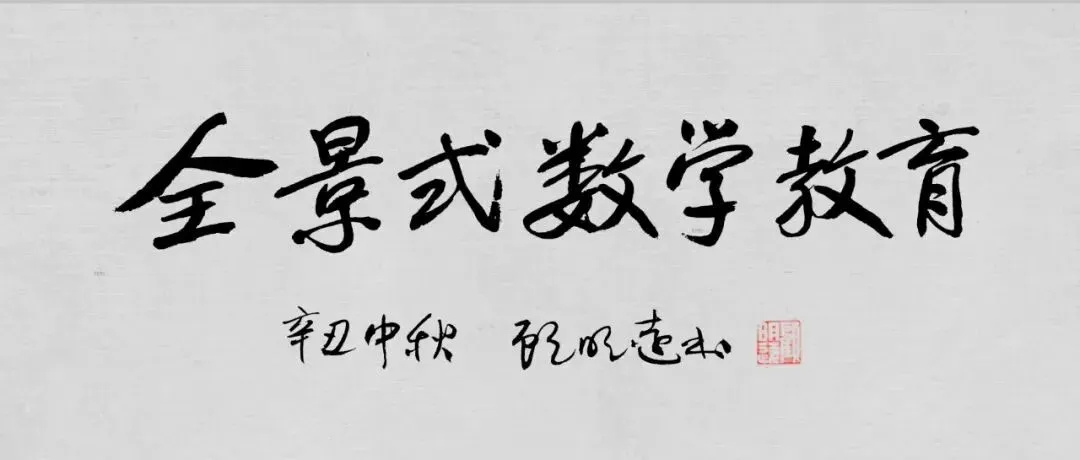 全景式数学教育
辛丑中秋 顾明远书
顾明远